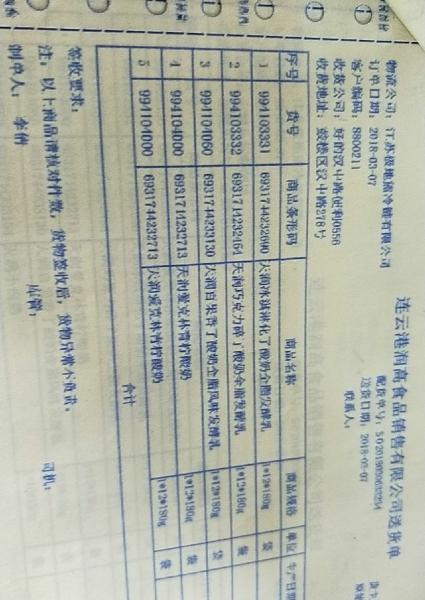 连云港润高食品销售有限公司送货单
物流公司：江苏极地猫冷链有限公司
订单日期：2018-03-07
送货日期：2018-03-07
客户编码：8800211
联系人：
收货公司：好的汉中路便利0556
收货地址：鼓楼区汉中路278号
序号 货号 商品条形码 商品名称 商品规格 单位 生产日期
1 994103331 天润冰淇淋化了酸奶全脂发酵乳 1*12*180g 袋
2 994103332 天润巧克力碎了酸奶全脂发酵乳 1*12*180g 袋
3 994104060 6931744233130 天润百果香了酸奶全脂风味发酵乳 1*12*180g 袋
4 994104000 6931744232713 天润爱克林青柠酸奶 1*12*180g 袋
5 994104000 6931744232713 天润爱克林青柠酸奶 1*12*180g 袋
合计
签收要求：
注：以上商品请核对件数，货物签收后，货物异常不负责。
制单人：李倩
司机：